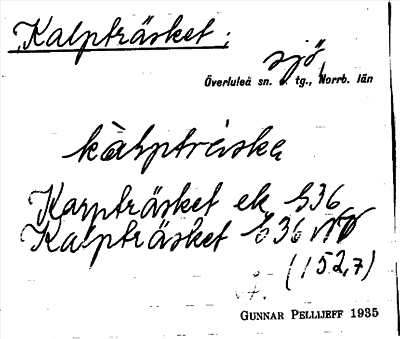 Kalpträsket;
sjö,
Överluleå sn. tg., Norrb. län
kàlptràska
Karpträsket ek S36
Kalpträsket S36
(152,7)
GUNNAR PELLIJEFF 1935